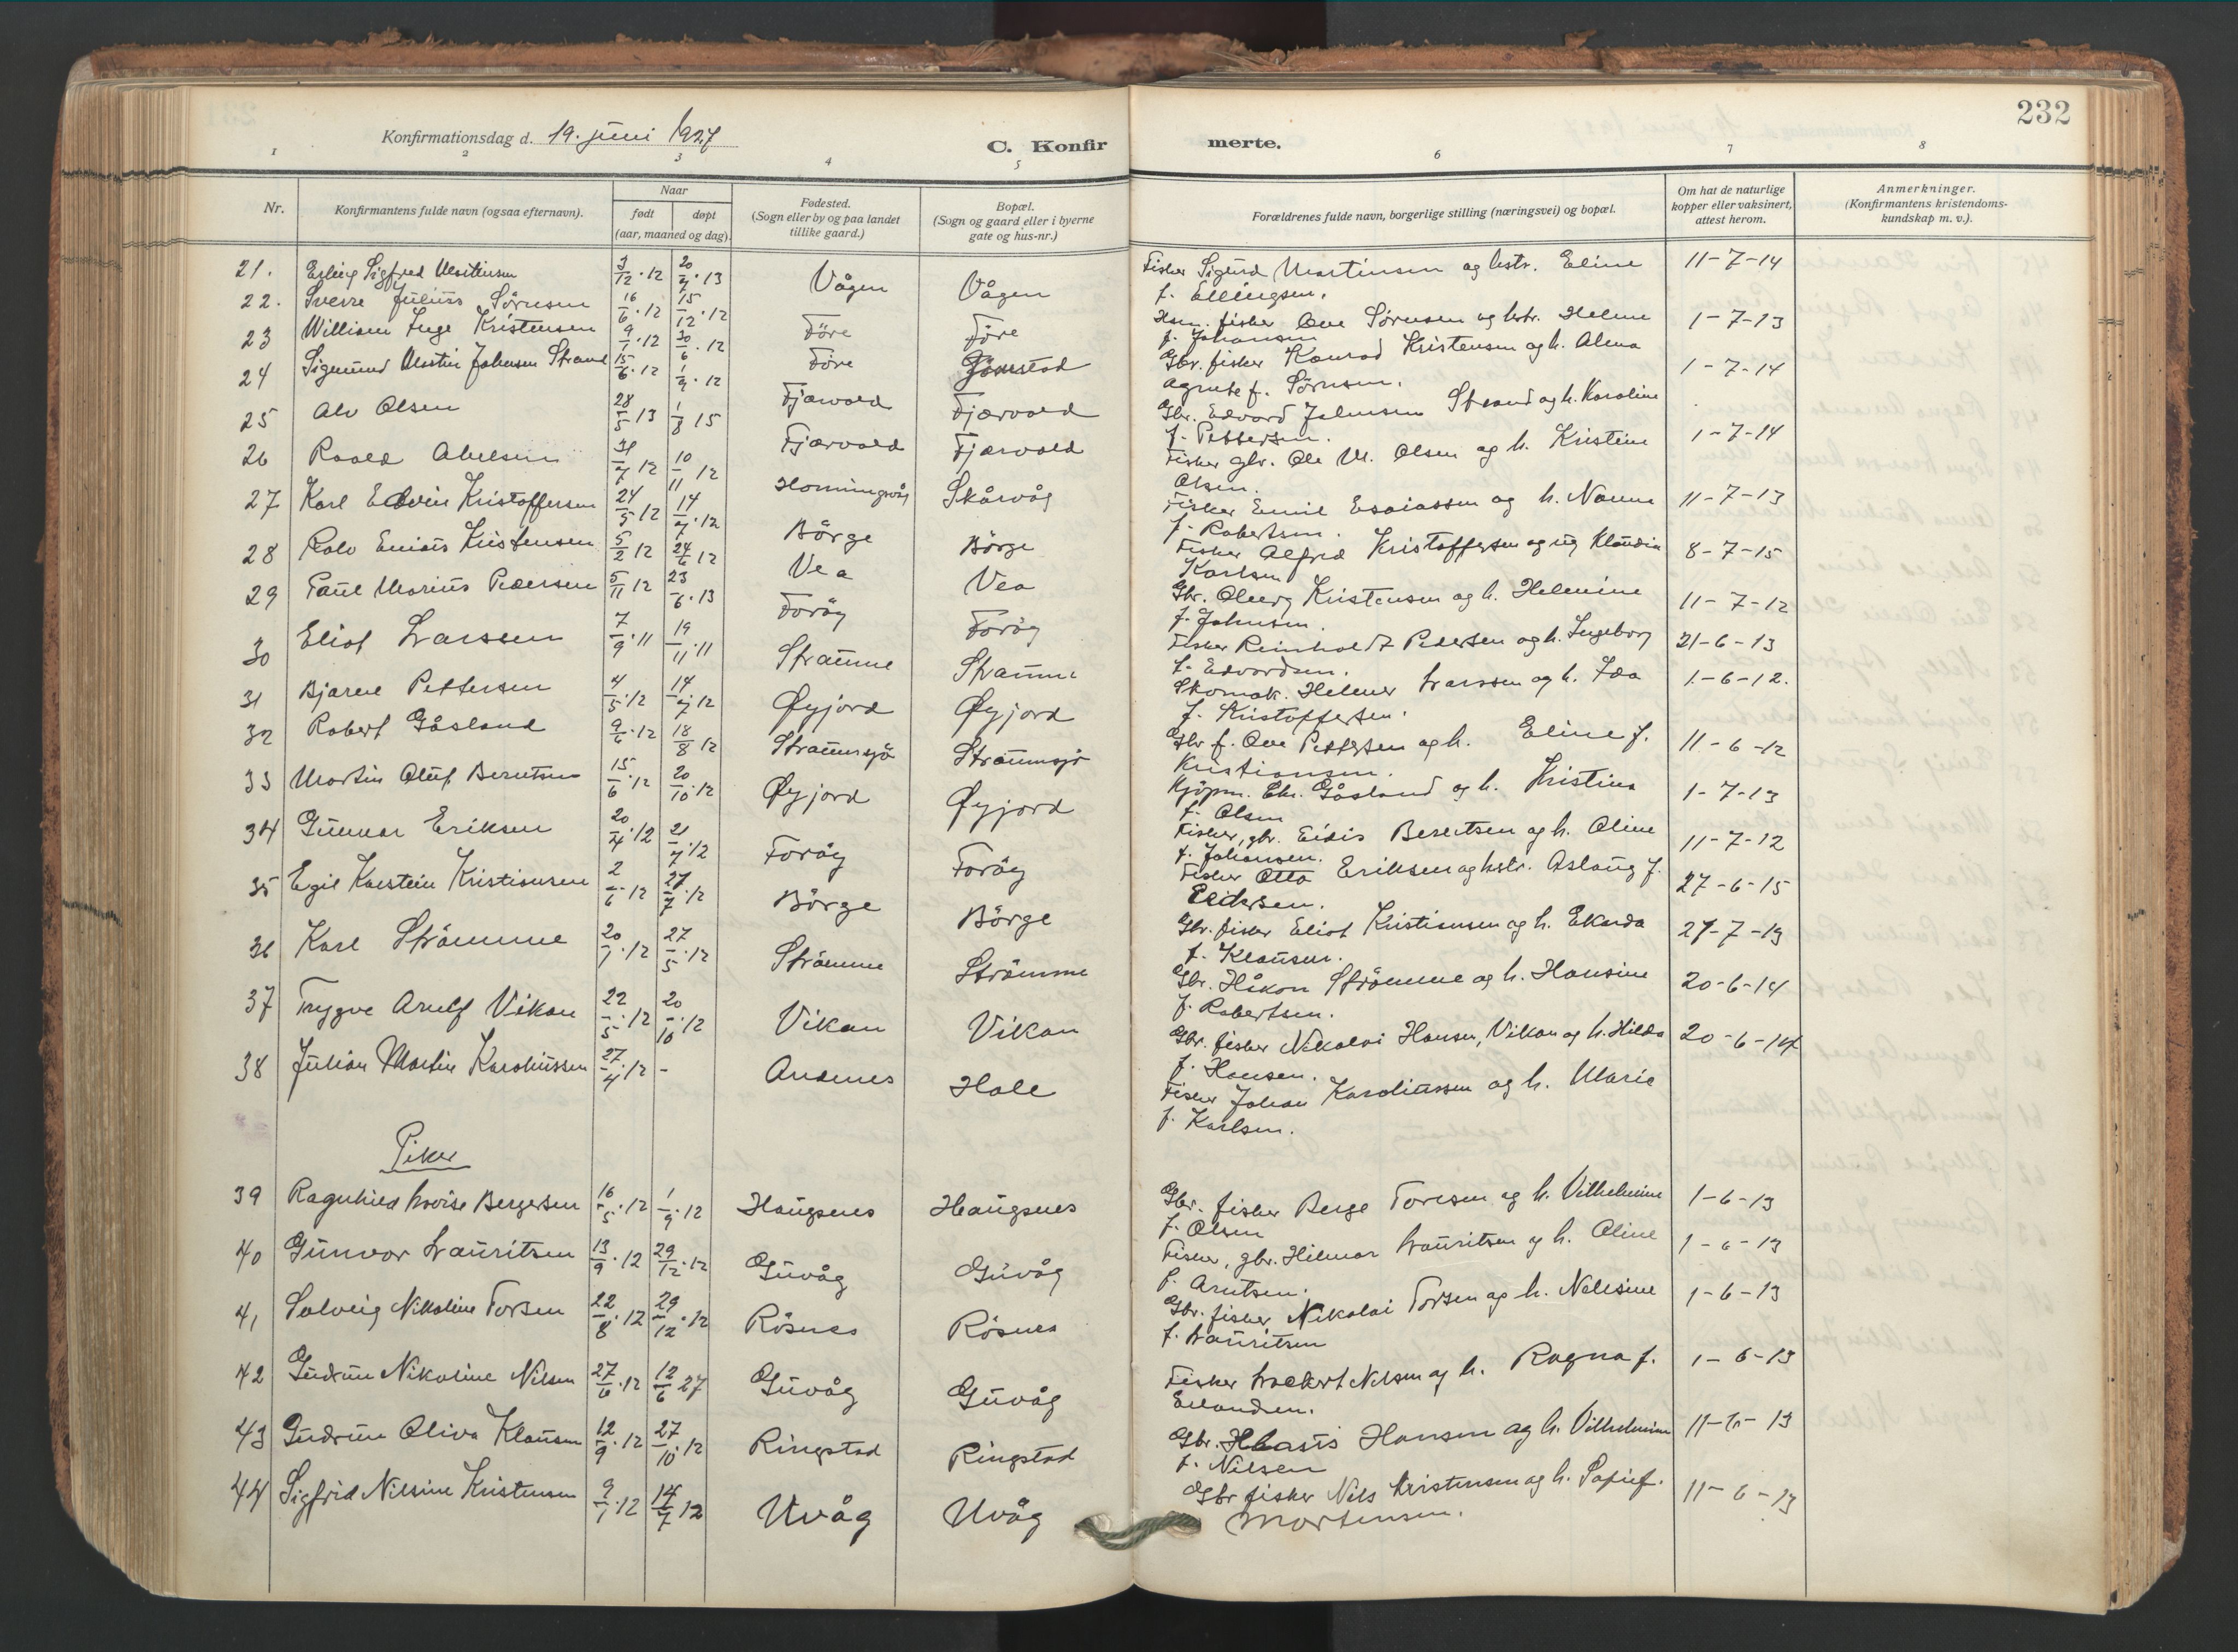 232
Konfirmationsdag d. 19. juni 1927
C. Konfir merte.
1 2 3 4 5 6 7 8
Nr.
Konfirmantens fulde navn (ogsaa efternavn).
Naar
født døpt
(aar, maaned og dag).
Fødested.
(Sogn eller by og paa landet
tillike gaard.)
Bopæl.
(Sogn og gaard eller i byerne
gate og hus-nr.)
Forældrenes fulde navn, borgerlige stilling (næringsvei) og bopæl.
Om hat de naturlige
kopper eller vaksinert,
attest herom.
Anmerkninger.
(Konfirmantens kristendoms-
kundskap m. v.).
21. Erling Sigfred Martinsen 3/12.12 20/7.13 Vågen Vågen Fisker Sigurd Martinsen og hstr. Eline 11-7-14
f. Ellingsen.
22. Sverre Julius Sörensen 16/6.12 15/12.12 Före Före fisker Ove Sörensen og hstr. Helene 1-7-13
f. Johansen
23 William Inge Kristensen 9/1.12 30/6.12 Före Gbr. fisker Konrad Kristensen og h. Alma 1-7-14
Agnete f. Sörensen.
24 Sigmund Martin Johansen Strand 15/6.12 1/9.12 Fjærvold Fjærvold Gbr. Edvard Johansen Strand og h. Karoline
f. Pettersen.
25 Alv Olsen 28/5 13 1/8 15 Fjærvold Fjærvold Fisker gbr. Ole M. Olsen og h. Kristine 1-7-14
Olsen.
26 Roald Abelsen 31/7 12 10/11 12 Honningsvåg Skårvåg Fisker Emil Esaiassen og h. Nanna 11-7-13
f. Robertsen.
27 Karl Edvin Kristoffersen 24/5 12 14/7.12 Börge Börge Fisker Alfred Kristoffersen og ug Klaudia 8-7-15
Karlsen
28 Rolv Enius Kristensen 5/2 12 24/6 12 Vea Vea Gbr. Kristensen og h. Helmine 11-7-12
f. Johnsen.
29 Paul Marius Pedersen 5/11 12 23/6.13 Foröy Foröy Fisker Reinholdt Pedersen og h. Ingeborg 21-6-13
f. Edvardsen.
30 Eliot Larssen 7/9.11 19/11.11 Straume Straume Skomak. Helmer Larssen og h. Ida 1-6-12.
f. Kristoffersen.
31 Bjarne Pettersen 4/5.12 14/7 12 Øyjord Øyjord Gbr f. Ove Pettersen og h. Eline f. 11-6-12
Kristiansen.
32 Robert Gåsland 9/6.12 18/8 12 Straumsjö Straumsjö Kjöpm. Chr. Gåsland og h. Kristina 1-7-13
f. Olsen
33 Martin Oluf Berntsen 15/6.12 20/10.12 Øyjord Øyjord Fisker, gbr. Eidis Berentsen og h. Oline 11-7-12
f. Johansen.
34 Gunnar Eriksen 20/4.12 21/7.12 Foröy Foröy Fisker Otto Eriksen og hstr. Aslaug f. 27-6-15
35 Egil Karstein Kristiansen 2/6.12 27/7.12 Börge Börge Gbr. fisker Eliot Kristiansen og h. Ekarda 27-7-13
f. Klausen.
36 Karl Strömme 20/1.12 27/5.12 Strömme Strömme Gbr. Håkon Strömme og h. Hansine 20-6-14
f. Robertsen.
37 Trygve Arulf Vikan 22/5.12 20/10.12 Vikan Vikan Gbr. fisker Nikolai Hansen, Vikan og h. Hilda 20-6-14
f. Hansen.
38 Julian Martin Karoliussen 27/4.12 - Andenes Hole Fisker Johan Karoliussen og h. Marie
f. Karlsen.
Piker
39 Ragnhild Lovise Bergersen 16/5.12 1/9.12 Haugsnes Haugsnes Gbr. fisker Berge Toresen og h. Vilhelmine 1-6-13
f. Olsen
40 Gunvor Lauritsen 13/9.12 29/12.12 Guvåg Guvåg Fisker, gbr. Hilmar Lauritsen og h. Oline 1-6-13
f. Arntsen.
41 Solveig Nikoline Torsen 22/8.12 29/12.12 Rösnes Rösnes Gbr. fisker Nikolai Torsen og h. Nelsine 1-6-13
f. Lauritsen
42 Gudrun Nikoline Nilsen 27/6.12 12/6 27 Guvåg Guvåg Fisker Lockert Nilsen og h. Ragna f. 1-6-13
Erlandsen.
43 Gudrun Oliva Klausen 12/9.12 27/10.12 Ringstad Ringstad Gbr. Hansen og h. Vilhelmine 11-6-13
f. Nilsen
44 Sigfrid Nilsine Kristensen 9/1.12 14/7 12 Uvåg Uvåg Gbr fisker Nils Kristensen og h. Sofie f. 11-6-13
Mortensen.